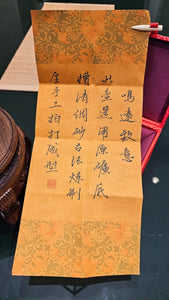 鳴遠款意
此壺選用原礦底
槽清調砂古法煉制
全手工拍打成型